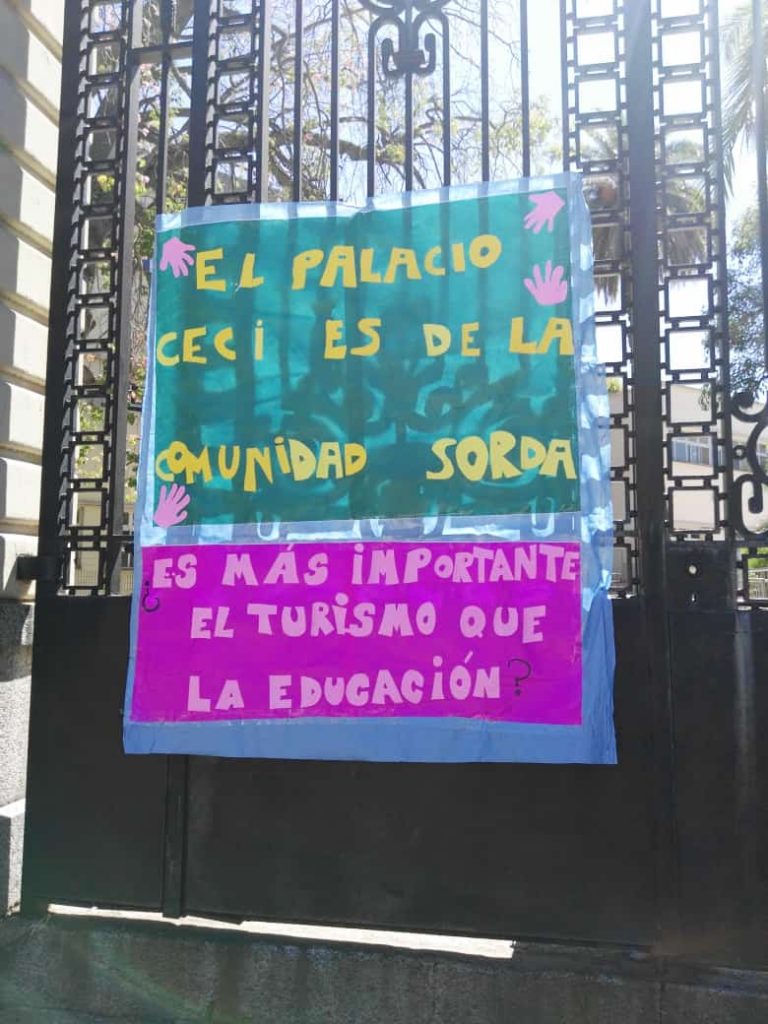 EL PALACIO
CECi ES DE LA
COMUNiDAD SORDA
¿ES MÁS iMPORTANTE
EL TURiSMO QUE
LA EDUCACiÓN?